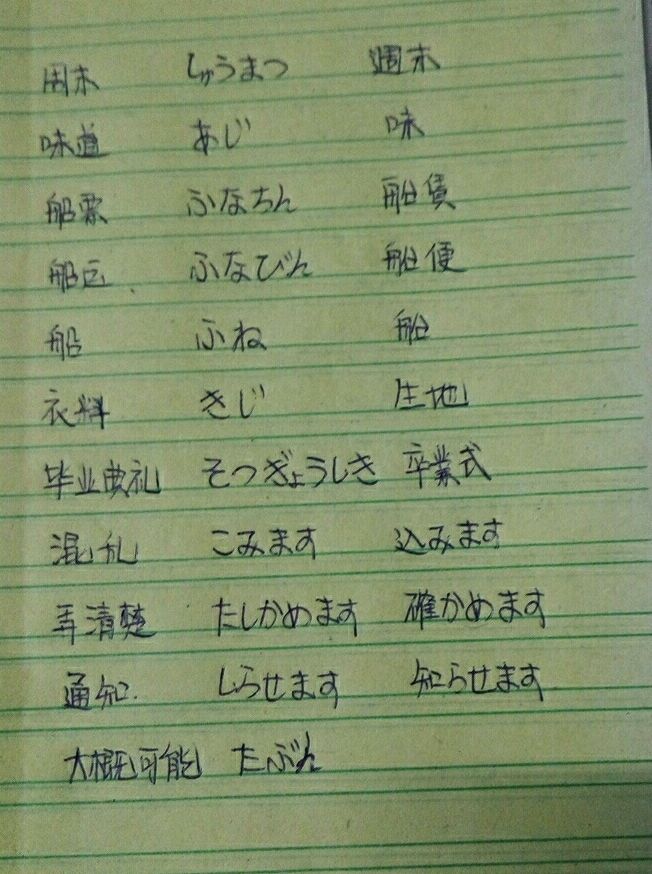 周末 しゅうまつ 週末
味道 あじ 味
船票 ふなちん 船賃
船运 ふなびん 船便
船 ふね 船
衣料 きじ 生地
毕业典礼 そつぎょうしき 卒業式
混乱 こみます 込みます
弄清楚 たしかめます 確かめます
通知. しらせます 知らせます
大概可能 たぶん